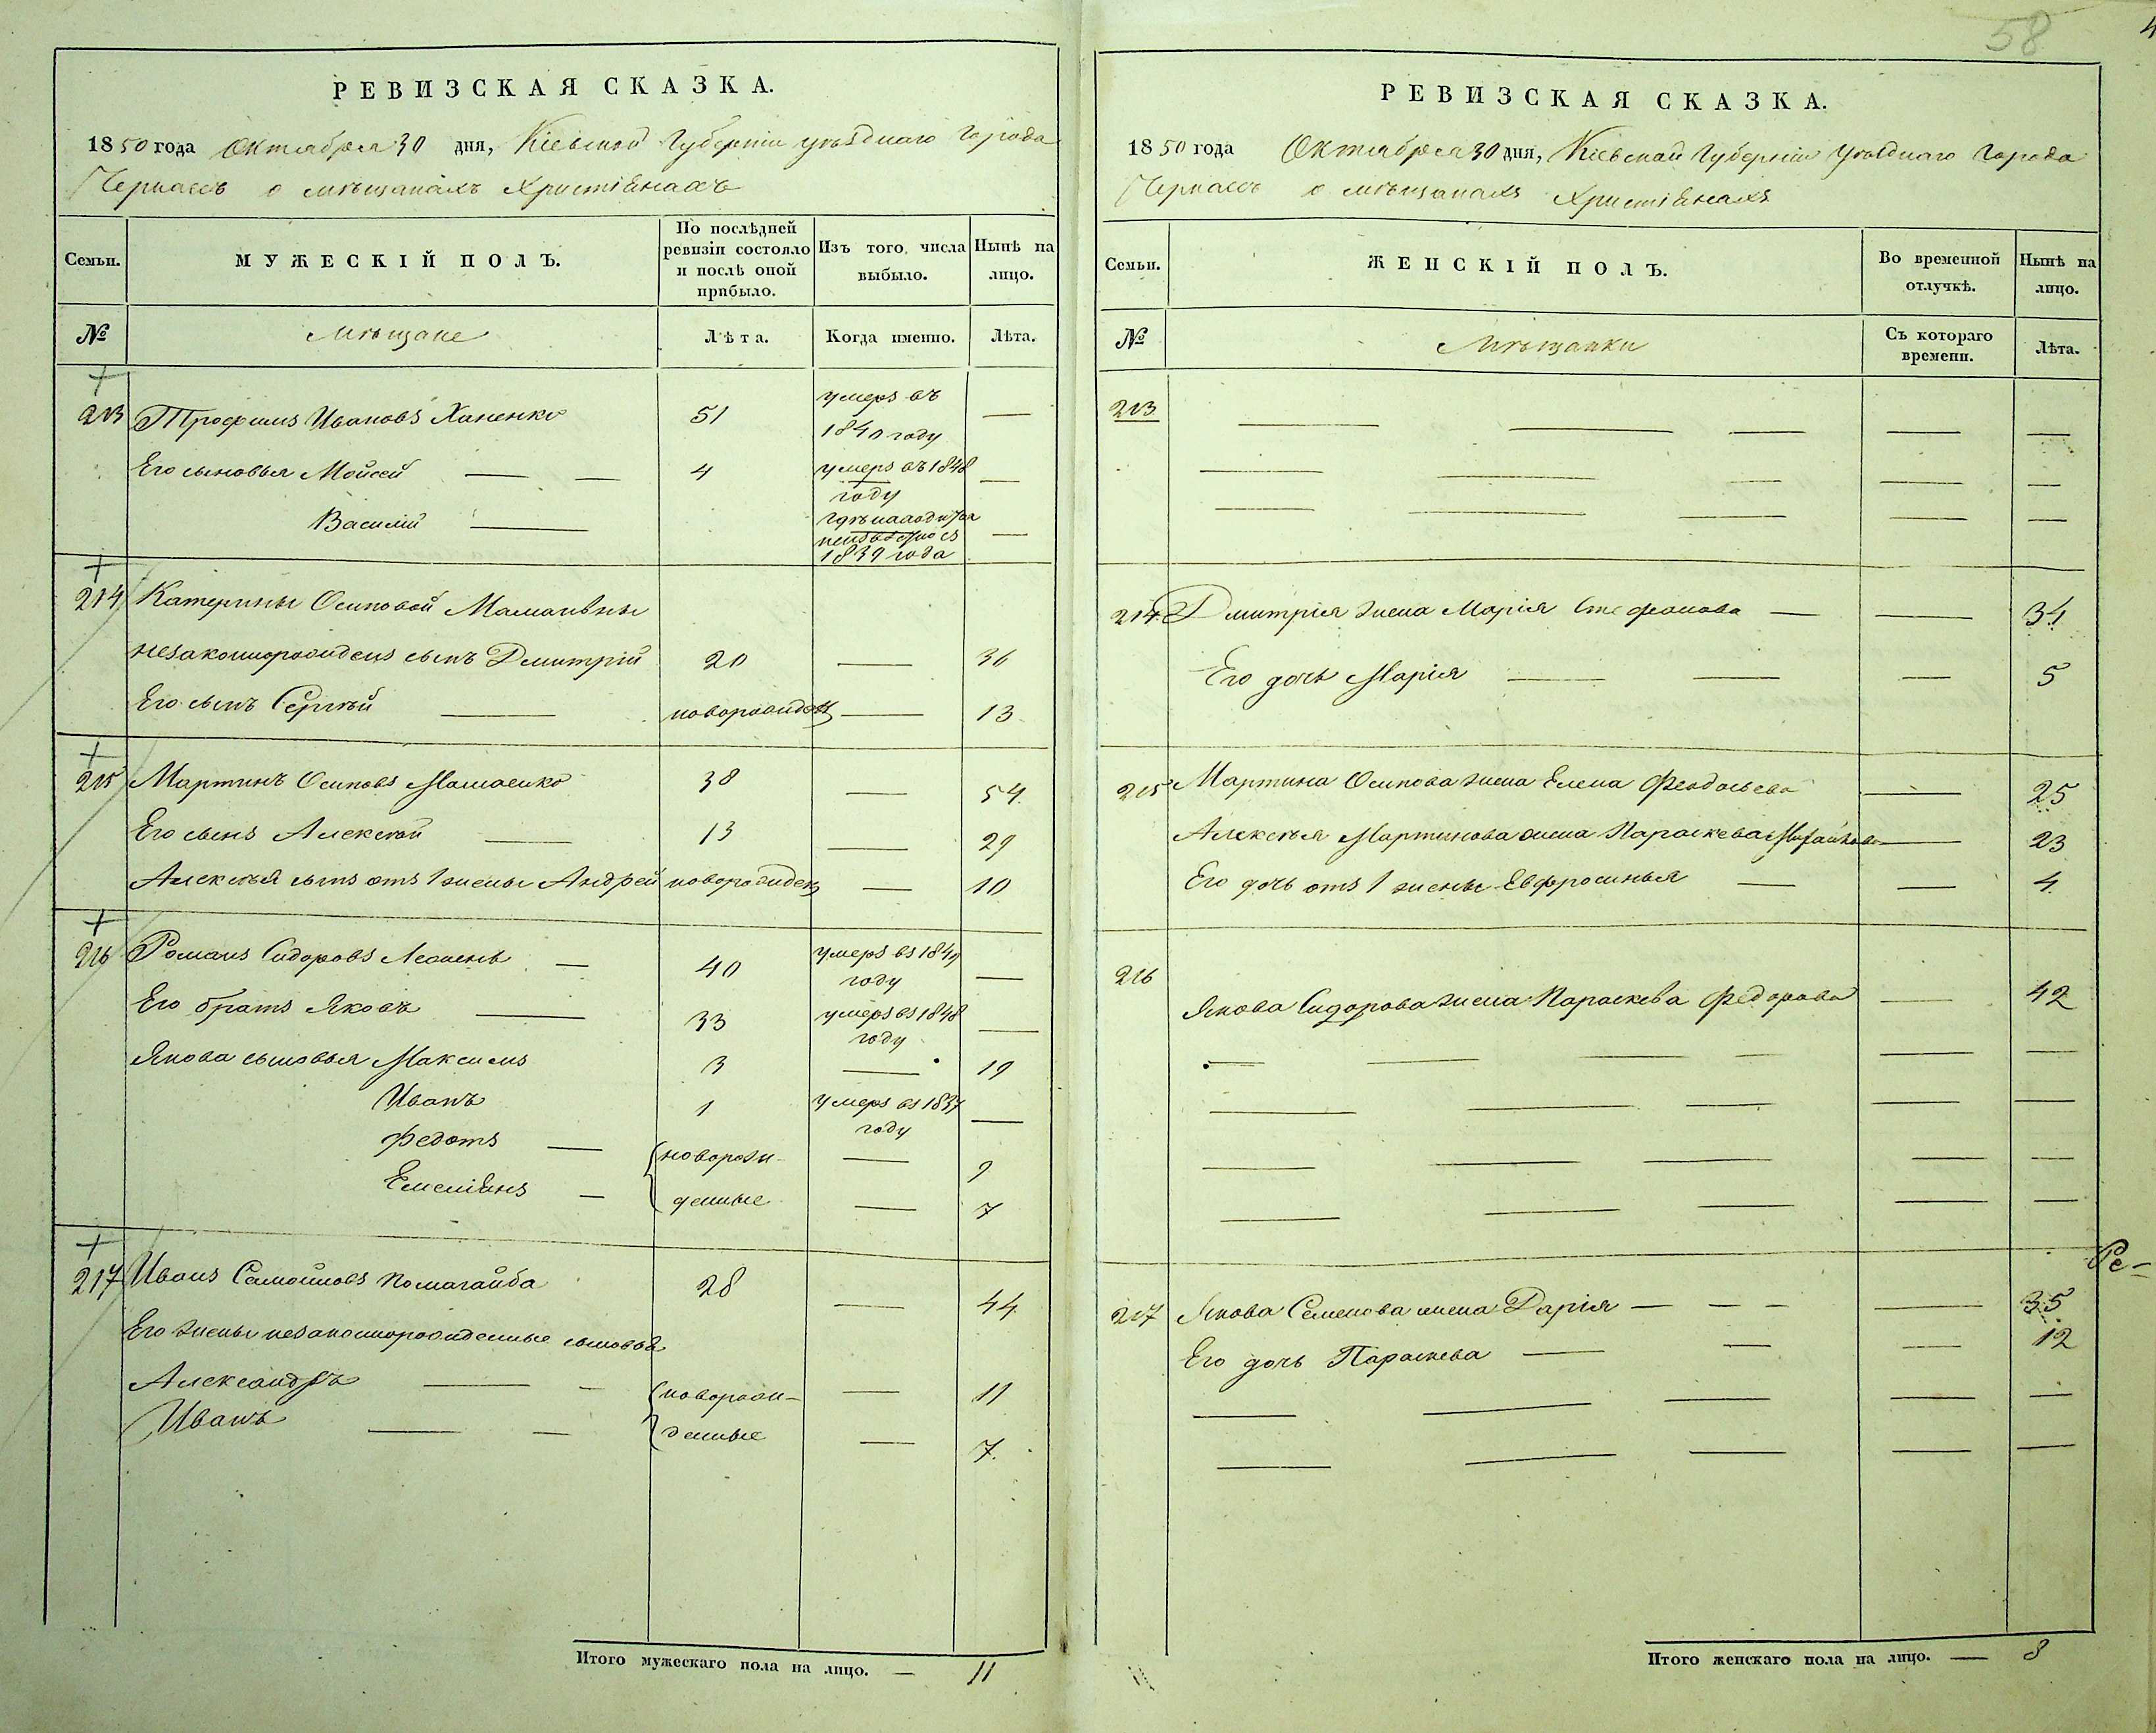 РЕВИЗСКАЯ СКАЗКА.
1850 года Октября 30 дня, Кіевской Губерніи уѣзднаго Города
Черкасъ о мѣщанахъ Христіянахъ
Семьи. МУЖЕСКІЙ ПОЛЪ. По послѣдней ревизіи состояло и послѣ оной прибыло. Изъ того числа выбыло. Нынѣ на лицо.
№ Мѣщане Лѣта. Когда именно. Лѣта.
213 Трофимъ Ивановъ 51 умеръ въ 1840 году —
Его сыновья Мойсей — — 4 умеръ въ 1848 году —
Василій — 1839 года —
214 Катерины Осиповой
незаконнорожденъ сынъ Дмитрій 20 — 36
Его сынъ Сергѣй — новорожден — 13
215 Мартинъ Осиповъ Мамаенко 38 — 54
Его сынъ Алексѣй — 13 — 29
Алексѣя сынъ отъ 1 жены Андрей новорожден — 10
216 Романъ Сидоровъ — 40 умеръ въ 1849 году —
Его братъ Яковъ — 33 умеръ въ 1848 году —
Якова сыновья Максимъ 3 — 19
Иванъ 1 умеръ въ 1837 году —
Федотъ — новорож- — 9
Емеліянъ — денные — 7
217 Иванъ Самойловъ Помагайба 28 — 44
Его жены незаконнорожденные сыновья
Александръ — — новорож- — 11
Иванъ — — денные — 7.
Итого мужескаго пола на лицо. — 11
58
РЕВИЗСКАЯ СКАЗКА.
1850 года Октября 30 дня, Кіевской Губерніи Уѣзднаго Города
Черкасъ о мѣщанахъ Христіянахъ
Семьи. ЖЕНСКІЙ ПОЛЪ. Во временной отлучкѣ. Нынѣ на лицо.
№ Мѣщанки Съ котораго времени. Лѣта.
213 — — — — —
— — — — —
— — — — —
214. Дмитрія жена Марія Стефанова — — 34
Его дочь Марія — — — 5
215 Мартина Осипова жена Елена Феодосьева — 25
Алексѣя Мартинова жена Параскева Михайлова — 23
Его дочь отъ 1 жены Евфросинья — — 4.
216
Якова Сидорова жена Параскева Федорова — 42
— — — — — —
— — — — —
— — — — —
— — — — —
217 Якова Семенова жена Дарія — — — — 35
Его дочь Параскева — — — 12
— — — — —
— — — — —
Ре-
Итого женскаго пола на лицо. — 8